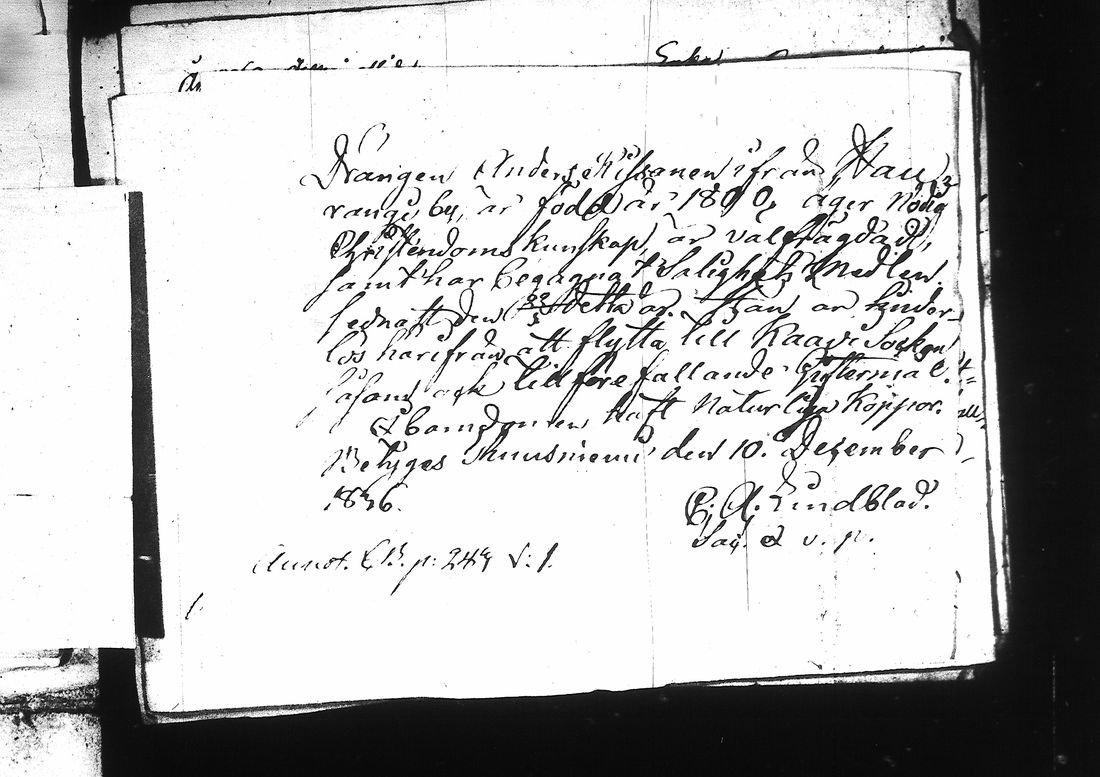 Drängen Anders Kissanen ifrån Hau
vangis by, är född år 1810, äger Nöijg
Christendoms kunskap, är välfrägdad,
samt har begagnat Salighets Medlen
sednast den 22/5 detta år. Han är hinder-
lös härifrån att flytta till Kaavi Sockn
såsom ock till förefallande Giftermål.
I barndomen haft naturliga Koppor.
Betygas Kuusniemi den 10. December
1836.
P. A. Lindblad.
Sac. & v. p.
Annot. CB. p: 249